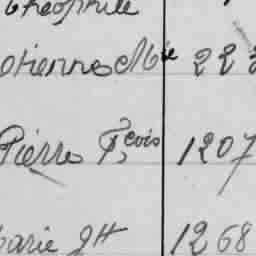 Théophile
Etienne Mie 222
Pierre Fcois 1207
Marie JH 1268